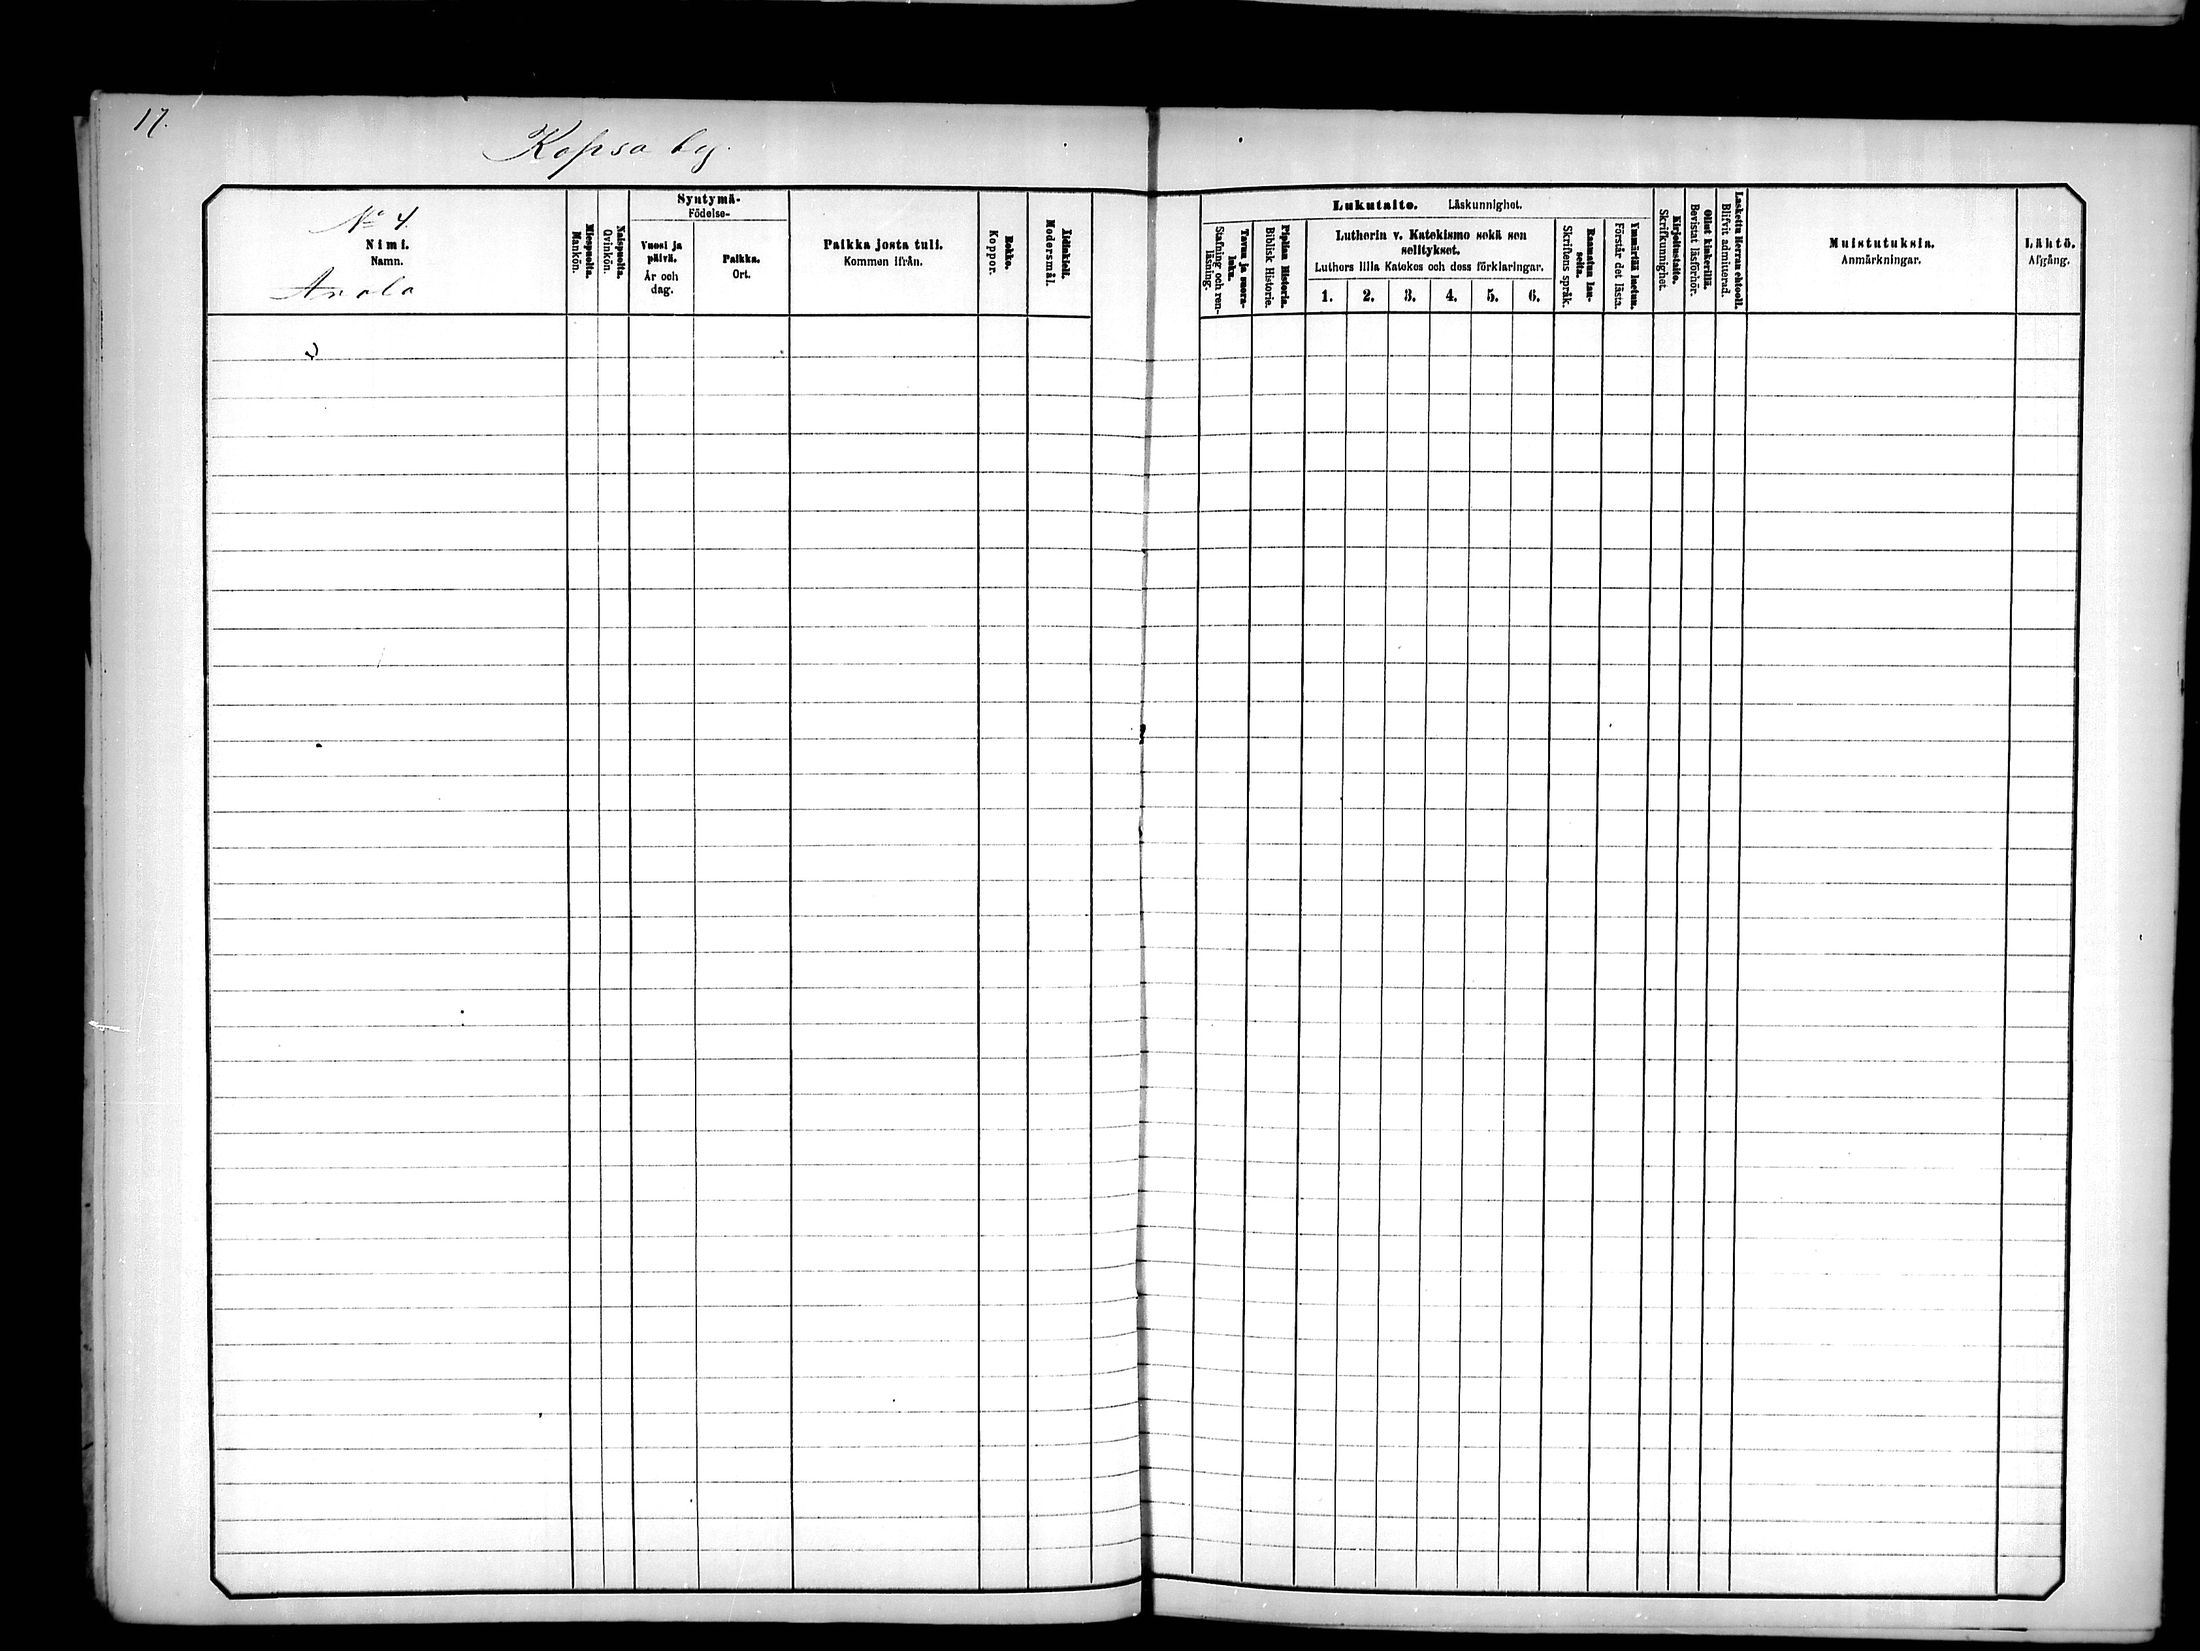 17.
Kopsa by.
No 4.
Nimi.
Namn.
Anola
Miespuolia.
Mankön.
Naispuolia.
Qvinkön.
Syntymä-
Födelse-
Vuosi ja
päivä.
År och
dag.
Paikka.
Ort.
Paikka josta tuli.
Kommen ifrån.
Rokko.
Koppor.
Äidinkieli.
Modersmål.
Lukutaito. Läskunnighet.
Tavau ja suora-
luku.
Stafning och ren-
läsning.
Piplian Historia.
Biblisk Historie.
Lutherin v. Katekismo sekä sen
selitykset.
Luthers lilla Katekes och dess förklaringar.
1. 2. 3. 4. 5. 6.
Raamatun lau-
seita.
Skriftens språk.
Ymmärtää luetun.
Förstår det lästa.
Kirjoitustaito.
Skrifkunnighet.
Ollut kinkerillä.
Bevistat läsförhör.
Laskettu Herran ehtooll.
Blifvit admitterad.
Muistutuksia.
Anmärkningar.
Lähtö.
Afgång.